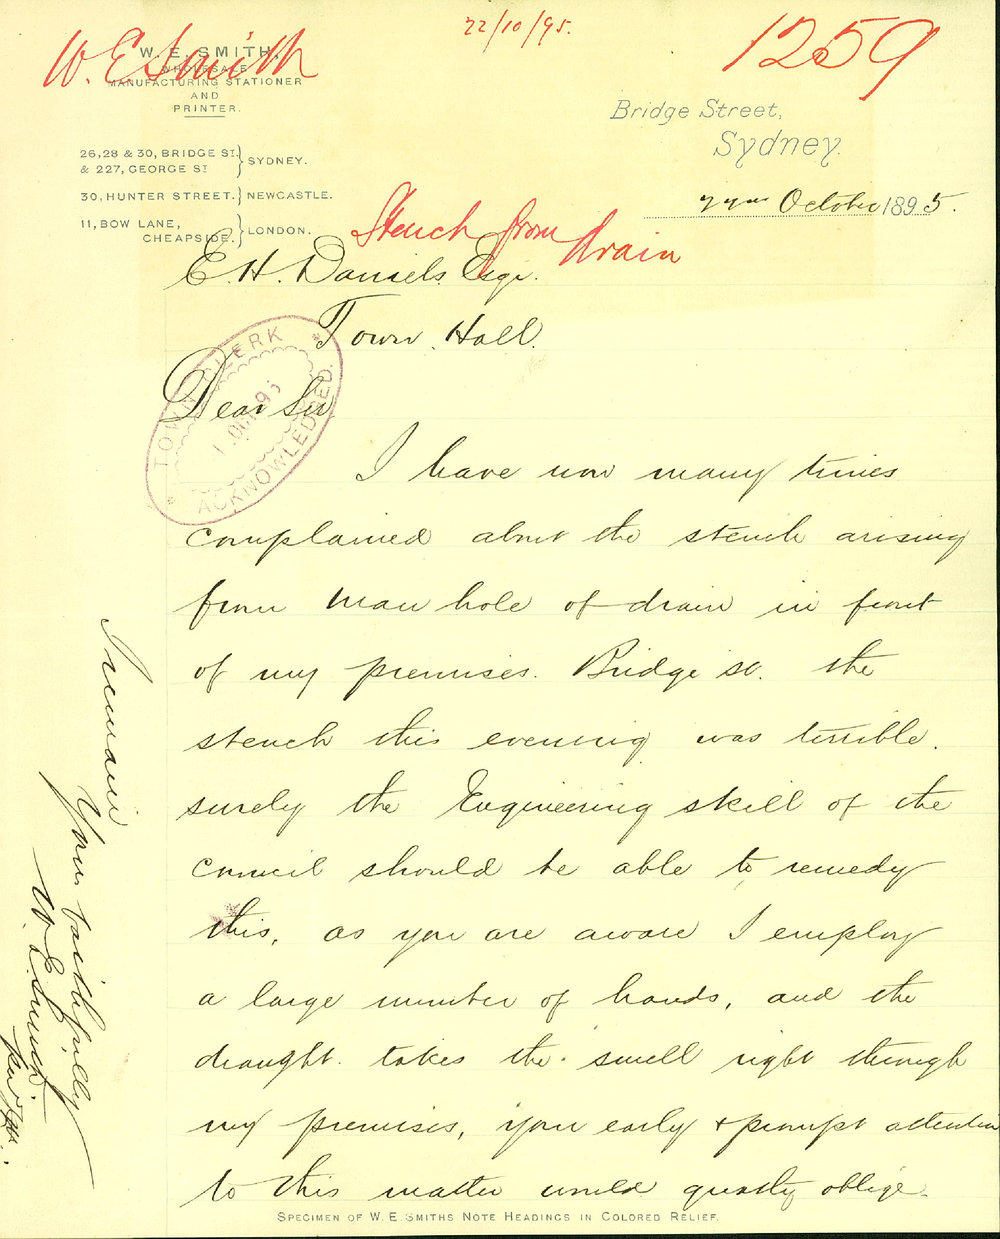 W. E. Smith
22/10/95.
1259
W. E. SMITH,
WHOLESALE
MANUFACTURING STATIONER
AND
PRINTER.
26,28 & 30, BRIDGE ST.
& 227, GEORGE ST
} SYDNEY.
30, HUNTER STREET. } NEWCASTLE.
11, BOW LANE,
CHEAPSIDE. } LONDON.
Bridge Street,
Sydney.
October 1895.
Stench from drain
E. H. Daniels Esqr.
Town Hall.
TOWN CLERK
OCT 95
ACKNOWLEDGED.
Dear Sir
I have now many times
complained about the stench arising
from man hole of drain in front
of my premises. Bridge St. the
stench this evening was terrible.
surely the Engineering skill of the
council should be able to remedy
this, as you are aware I employ
a large number of hands, and the
draught takes the smell right through
my premises, your early & prompt attention
to this matter would greatly oblige.
I remain
Yours faithfully
W. E. Smith.
per
SPECIMEN OF W. E. SMITHS NOTE HEADINGS IN COLORED RELIEF.